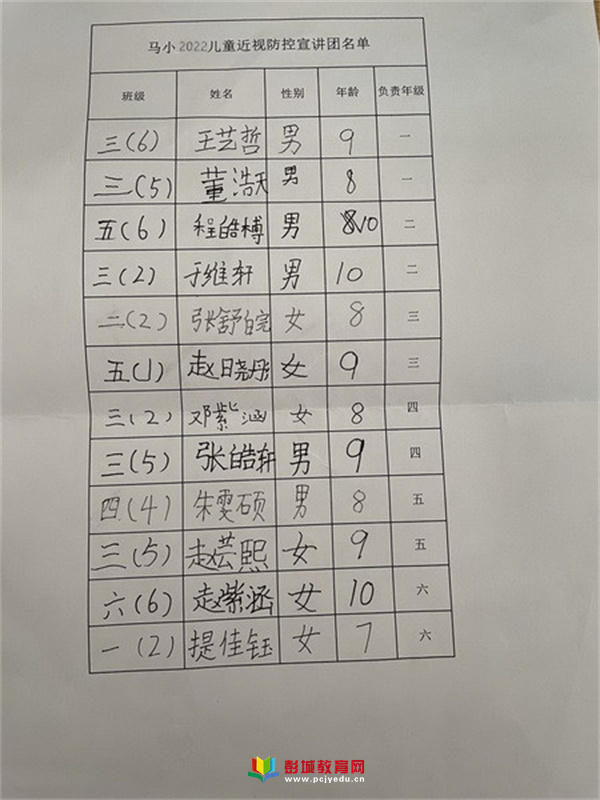 马小2022儿童近视防控宣讲团名单
班级 姓名 性别 年龄 负责年级
三(6) 王艺哲 男 9 一
三(5) 董浩天 男 8 一
五(6) 程皓榑 男 10 二
三(2) 于维轩 男 10 二
二(2) 张舒皖 女 8 三
五(1) 赵日晓彤 女 9 三
三(2) 邓紫涵 女 8 四
三(5) 张皓轩 男 9 四
四(4) 朱雯硕 男 8 五
三(5) 赵芸熙 女 9 五
六(6) 赵紫涵 女 10 六
一(2) 提佳钰 女 7 六
彭城教育网
www.pcjyedu.cn